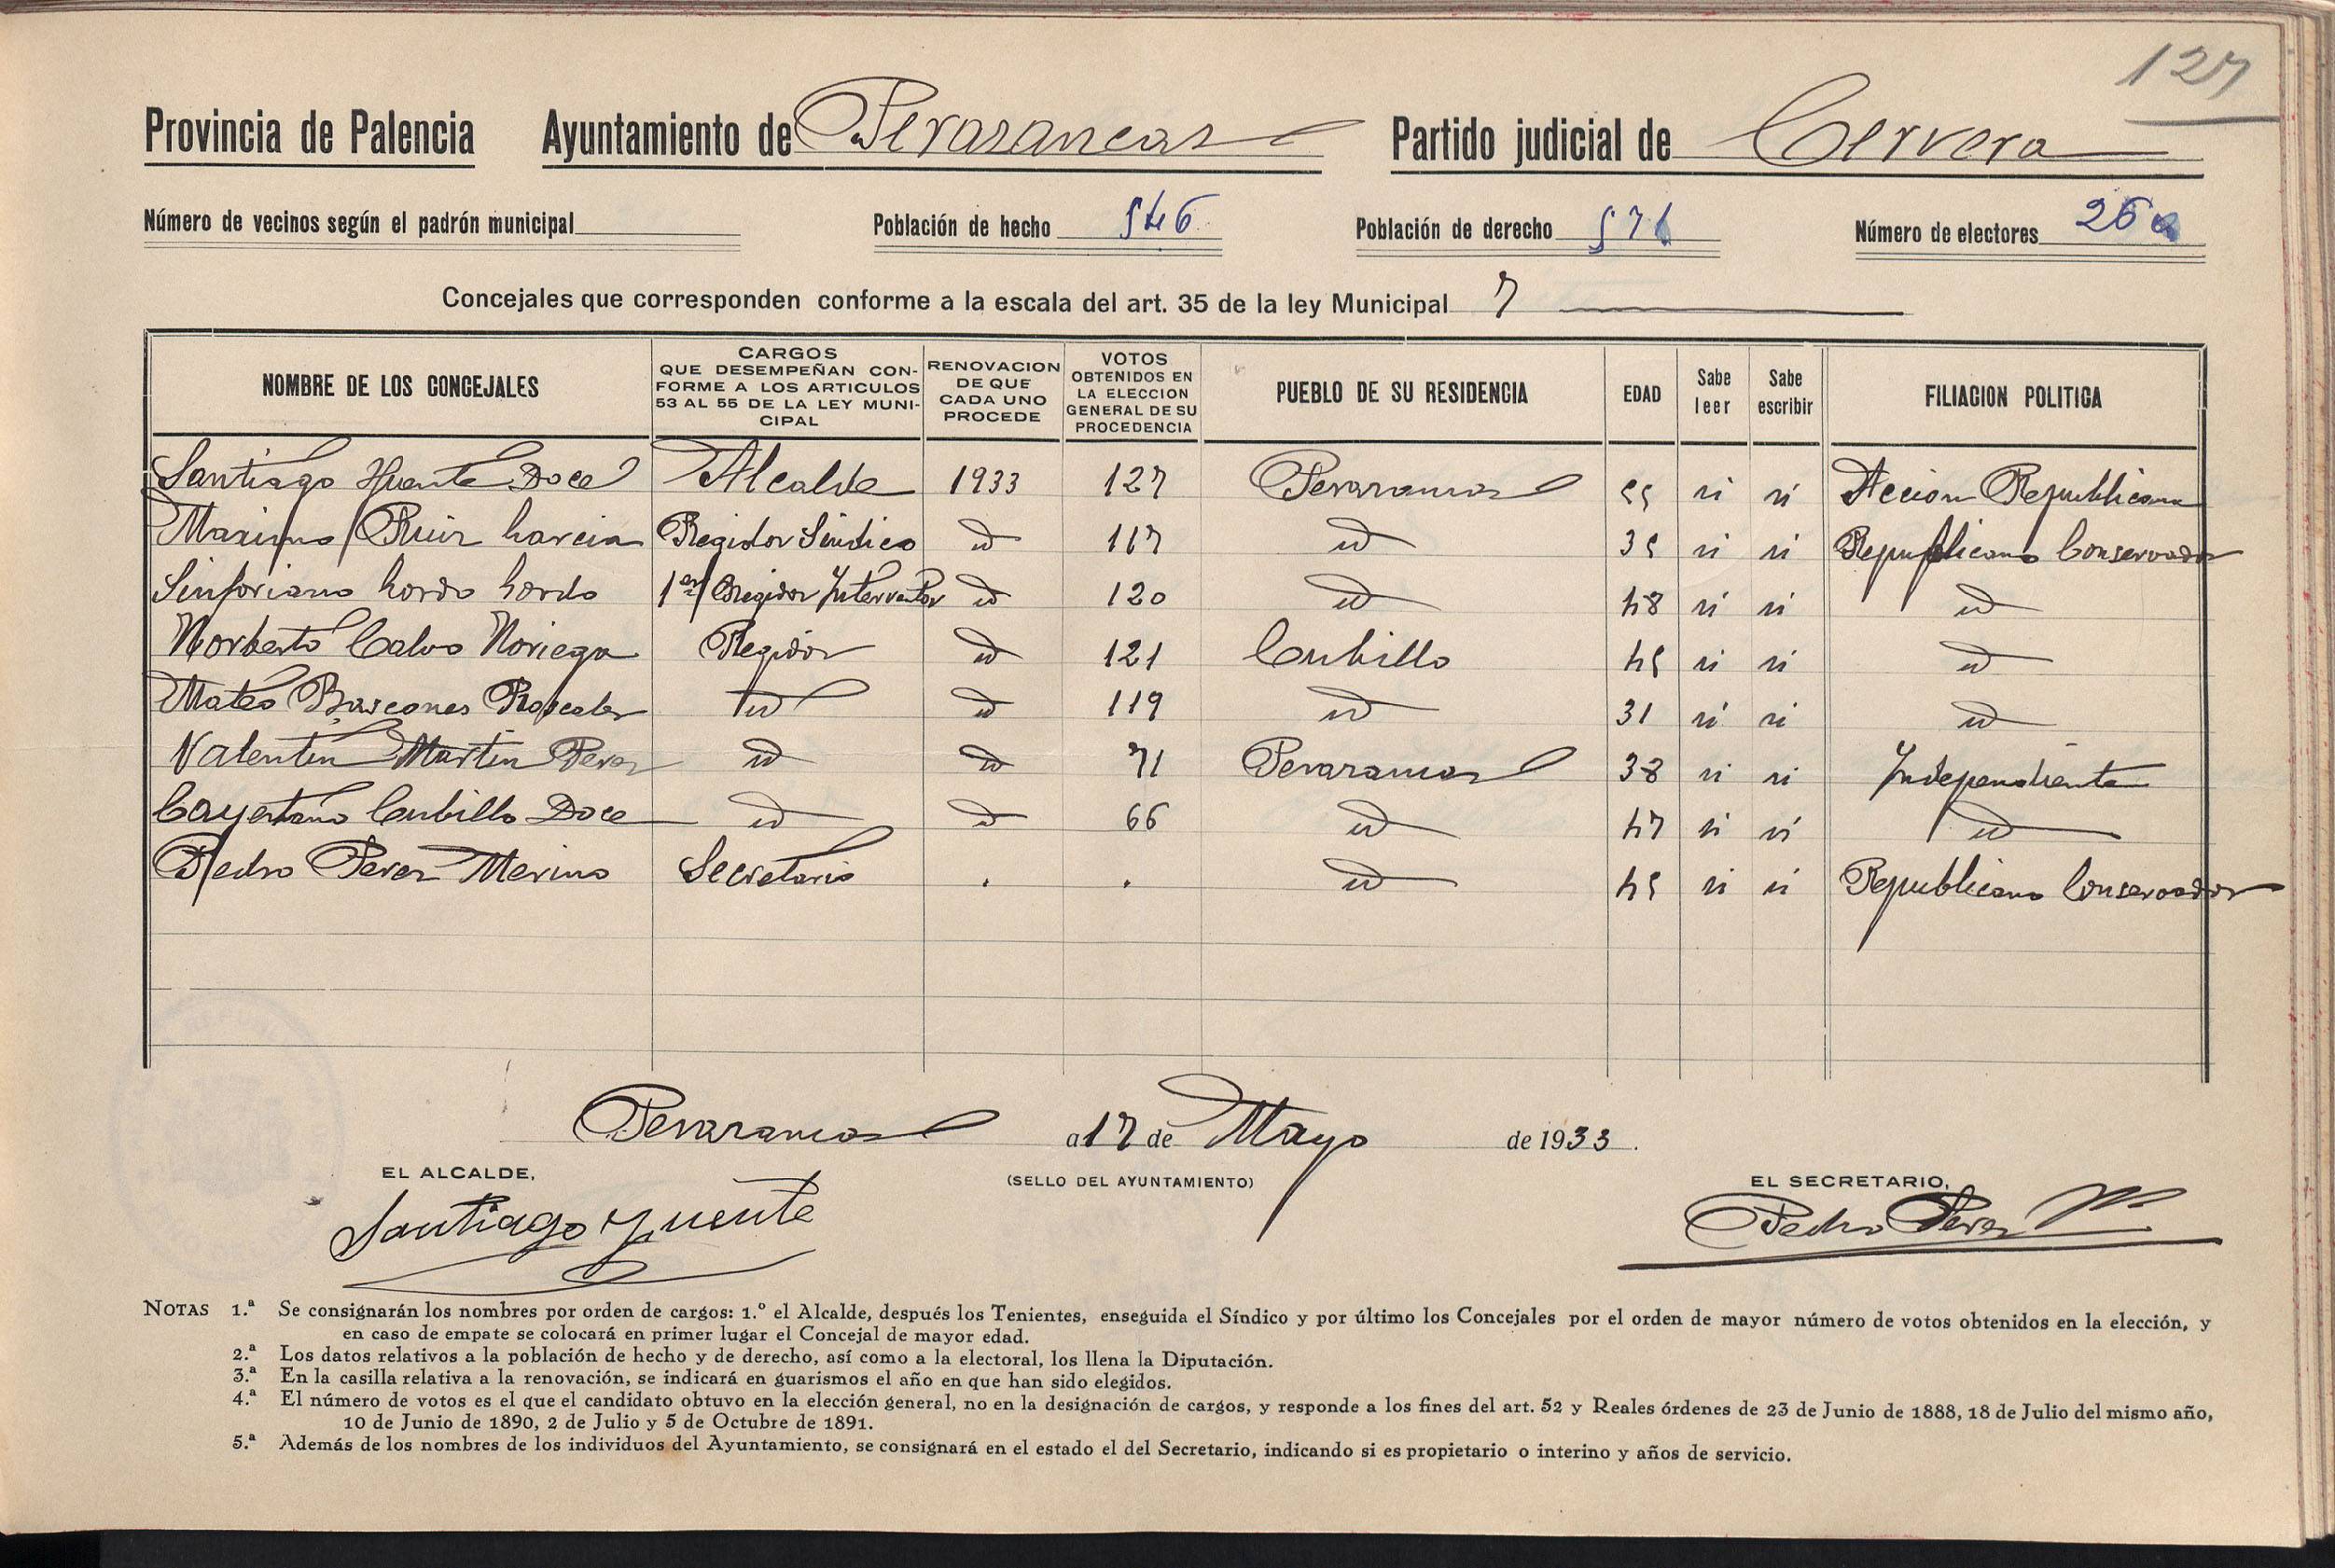 127
Provincia de Palencia Ayuntamiento de Perazancas Partido judicial de Cervera
Número de vecinos según el padrón municipal Población de hecho 546 Población de derecho 571 Número de electores
Concejales que corresponden conforme a la escala del art. 35 de la ley Municipal 7
NOMBRE DE LOS CONCEJALES CARGOS QUE DESEMPEÑAN CONFORME A LOS ARTICULOS 53 AL 55 DE LA LEY MUNICIPAL RENOVACION DE QUE CADA UNO PROCEDE VOTOS OBTENIDOS EN LA ELECCION GENERAL DE SU PROCEDENCIA PUEBLO DE SU RESIDENCIA EDAD Sabe leer Sabe escribir FILIACION POLITICA
Santiago Fuente Doce Alcalde 1933 127 Perazancas 55 si si Accion Republicana
Maximo Ruiz Garcia Regidor Sindico id 117 id 35 si si Republicano Conservador
Sinforiano Gordo Gordo 1er Regidor Interventor id 120 id 48 si si id
Norberto Calvo Noriega Regidor id 121 Cubillo 45 si si id
Mateo Barcones id id 119 id 31 si si id
Valentin Martin Perez id id 71 Perazancas 38 si si Independiente
Cayetano Cubillo Doce id id 66 id 47 si si id
Pedro Perez Merino Secretario . . id 45 si si Republicano Conservador
Perazancas a 17 de Mayo de 1933.
EL ALCALDE, (SELLO DEL AYUNTAMIENTO) EL SECRETARIO,
Santiago Fuente Pedro Perez M
NOTAS 1.ª Se consignarán los nombres por orden de cargos: 1.º el Alcalde, después los Tenientes, enseguida el Síndico y por último los Concejales por el orden de mayor número de votos obtenidos en la elección, y
en caso de empate se colocará en primer lugar el Concejal de mayor edad.
2.ª Los datos relativos a la población de hecho y de derecho, así como a la electoral, los llena la Diputación.
3.ª En la casilla relativa a la renovación, se indicará en guarismos el año en que han sido elegidos.
4.ª El número de votos es el que el candidato obtuvo en la elección general, no en la designación de cargos, y responde a los fines del art. 52 y Reales órdenes de 23 de Junio de 1888, 18 de Julio del mismo año,
10 de Junio de 1890, 2 de Julio y 5 de Octubre de 1891.
5.ª Además de los nombres de los individuos del Ayuntamiento, se consignará en el estado el del Secretario, indicando si es propietario o interino y años de servicio.